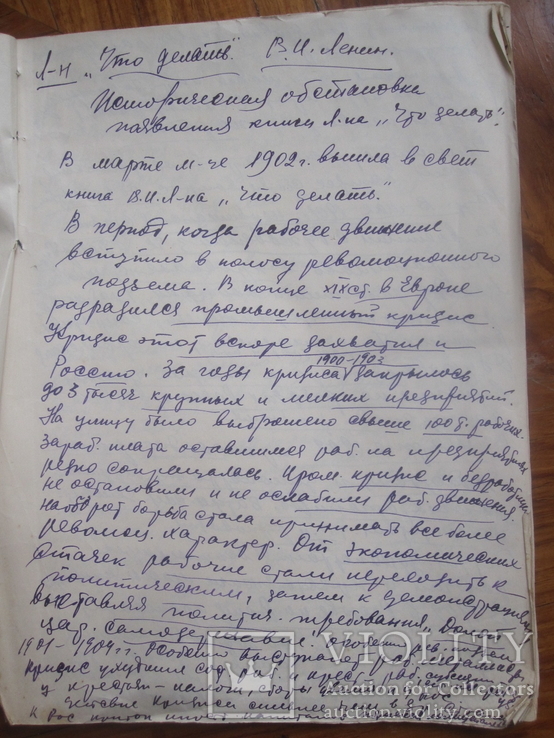 Л-н „Что делать". В.И. Ленин.
Историческая обстановка
появления книги Л-на „Что делать".
В марте м-це 1902 г. вышла в свет
книга В.И. Л-на „Что делать".
В период, когда рабочее движение
вступило в полосу революционного
подъема. В конце XIX ст. в Европе
разразился промышленный кризис.
Кризис этот вскоре захватил и
Россию. За годы кризиса 1900-1903 закрылось
до 3 тысяч крупных и мелких предприятий.
На улицу было выброшено свыше 100 т. рабочих.
Зараб. плата оставшимся раб. на предприятиях
резко сокращалась. кризис и безработица
не остановили и не ослабили раб. движения.
наоборот борьба стала принимать все более
революц. характер. От экономических
стачек рабочие стали переходить к
политическим, затем к демонстрациям
выставляя политич. требования. Долой
цар. самодержавие.
1901-1904 гг. Особенно выступает
Кризис ухудшил
у крестьян-
VIOLITY
Auction for Collectors
auction.violity.com